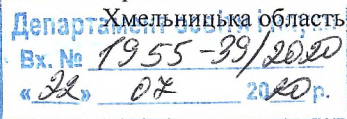 Хмельницька область
Департамент
Вх. № 1955-39/2020
«22» 07 2020 р.